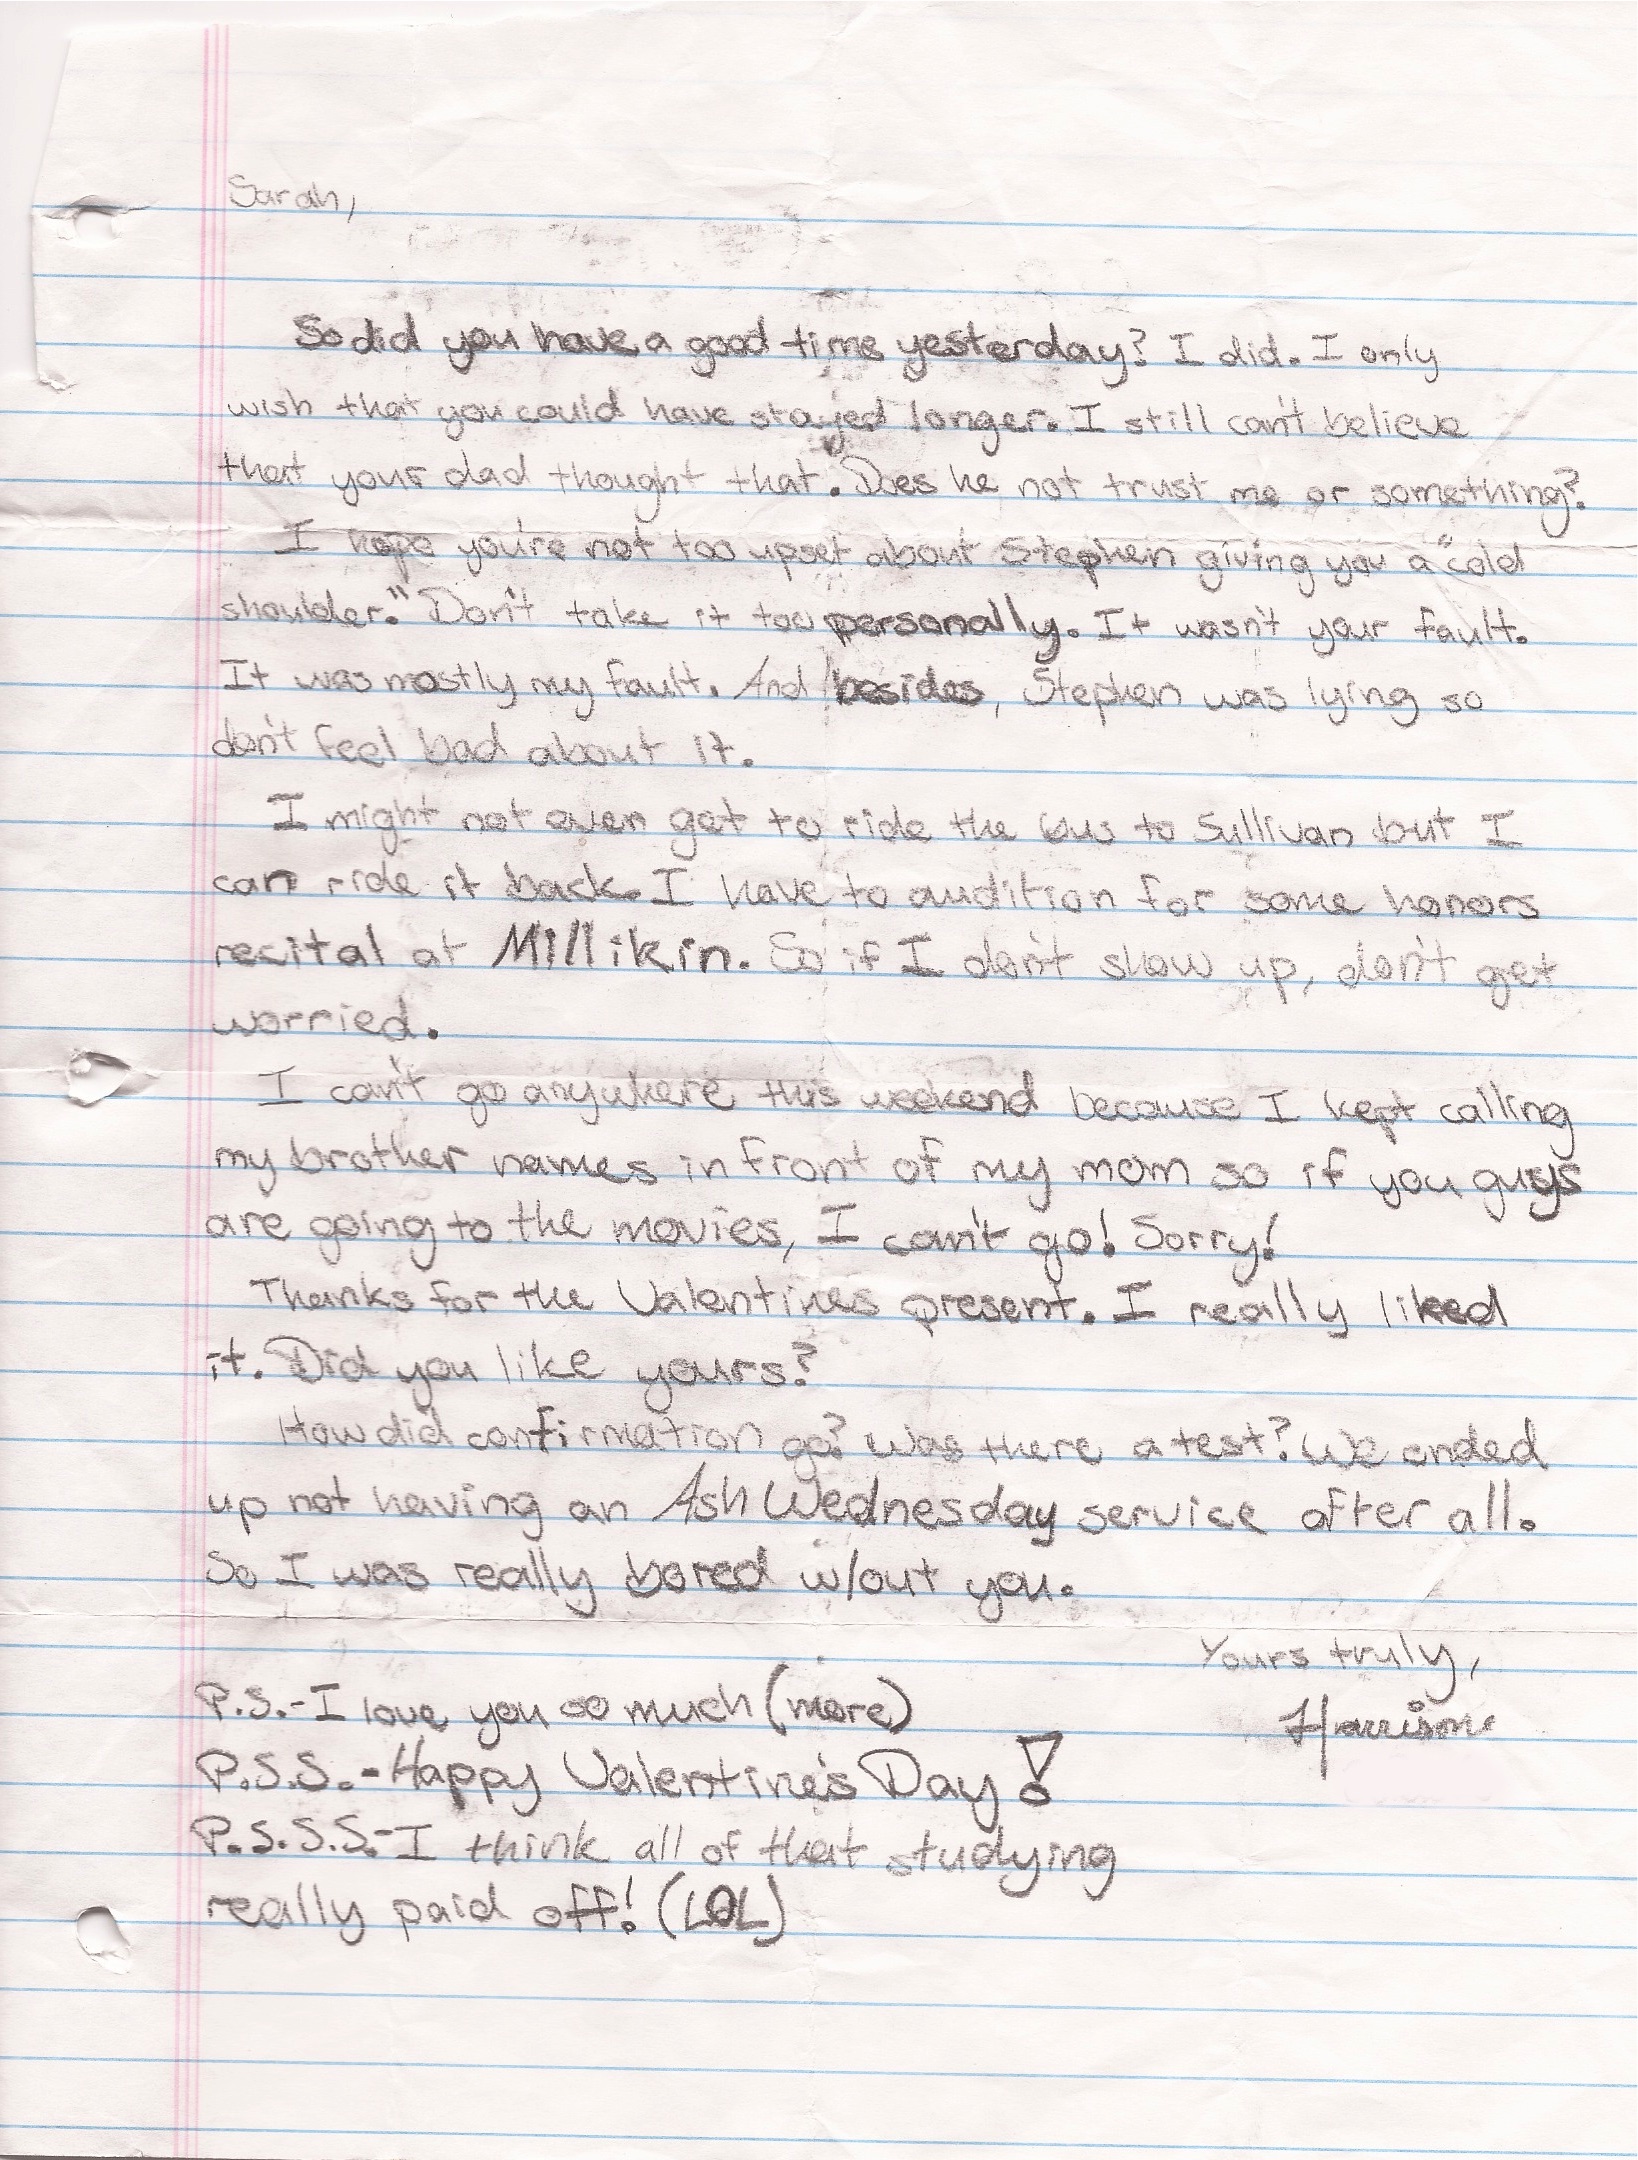 Sarah,
So did you have a good time yesterday? I did. I only
wish that you could have stayed longer. I still can't believe
that your dad thought that. Does he not trust me or something?
I hope you're not too upset about Stephen giving you a "cold
shoulder." Don't take it too personally. It wasn't your fault.
It was mostly my fault. And besides, Stephen was lying so
don't feel bad about it.
I might not even get to ride the bus to Sullivan but I
can ride it back. I have to audition for some honors
recital at Millikin. So if I don't show up, don't get
worried.
I can't go anywhere this weekend because I kept calling
my brother names in front of my mom so if you guys
are going to the movies, I can't go! Sorry!
Thanks for the Valentines present. I really liked
it. Did you like yours?
How did confirmation go? Was there a test? We ended
up not having an Ash Wednesday service after all.
So I was really bored w/out you.
Yours truly,
Harrison
P.S.-I love you so much (more)
P.S.S.-Happy Valentine's Day!
P.S.S.S.-I think all of that studying
really paid off! (LOL)